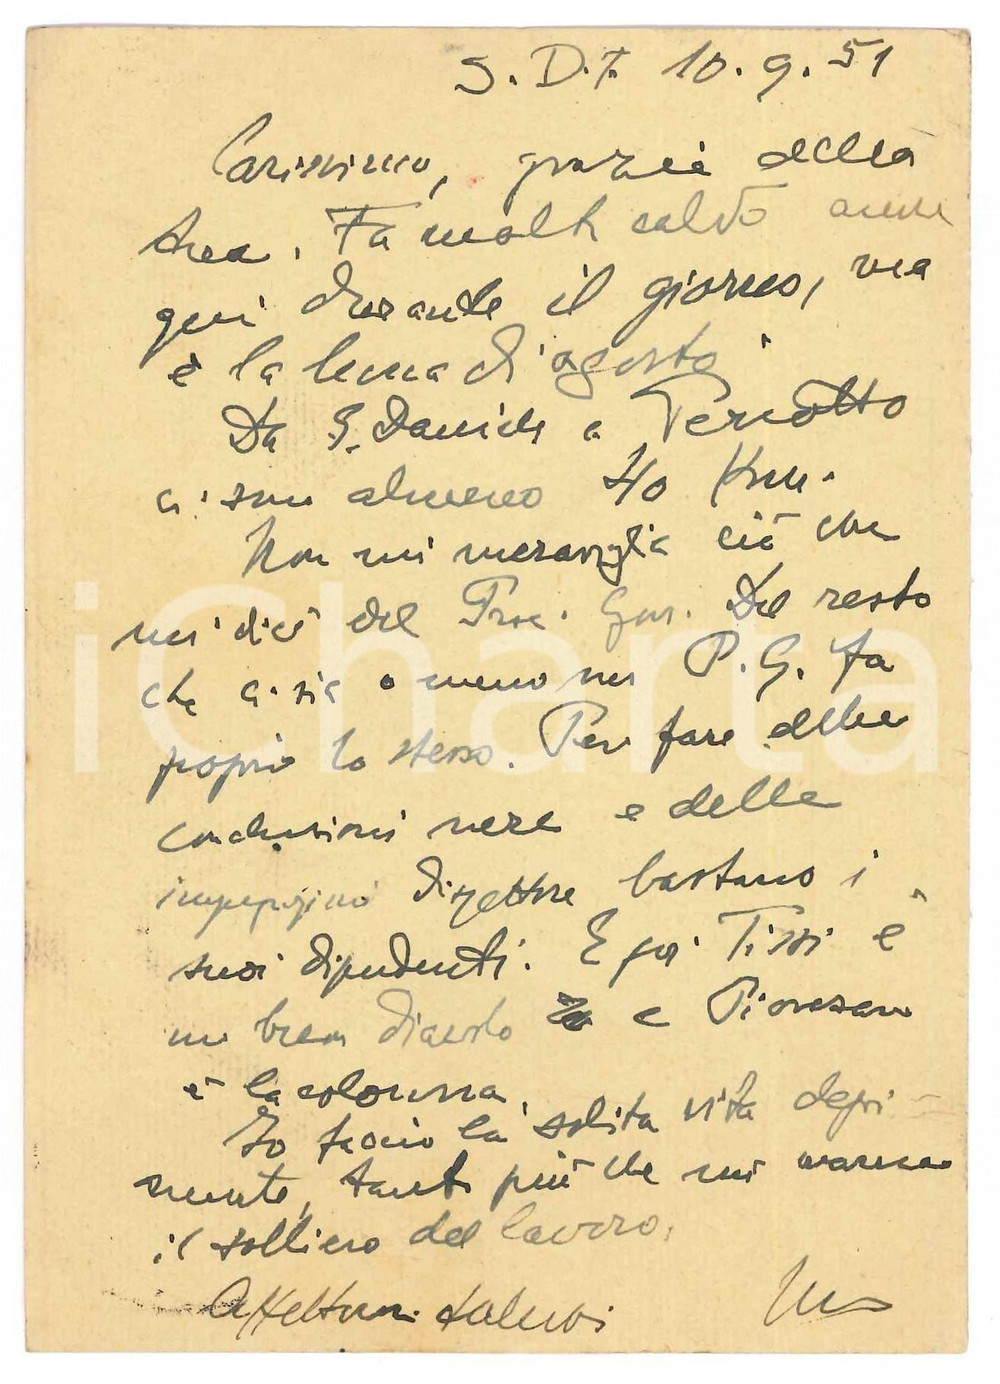 S.D.F. 10.9.51
Carissimo, grazie della
tua. Fa molto caldo anche
qui durante il giorno, ma
è la luna di agosto.
Da S. Daniele a
ci sono almeno 40 Km.
Non mi meraviglia ciò che
mi dici del Proc. Gen. Del resto
che ci sia o meno un P.G. fa
proprio lo stesso. Per fare delle
conclusioni nere e delle
direttore bastano i
suoi dipendenti. E poi Tissi è
un bravo diavolo e Piovesan
è la colonna.
Io faccio la solita vita depri-
mente, tanto più che mi manca
il sollievo del lavoro.
Affettuosi saluti
iCharta